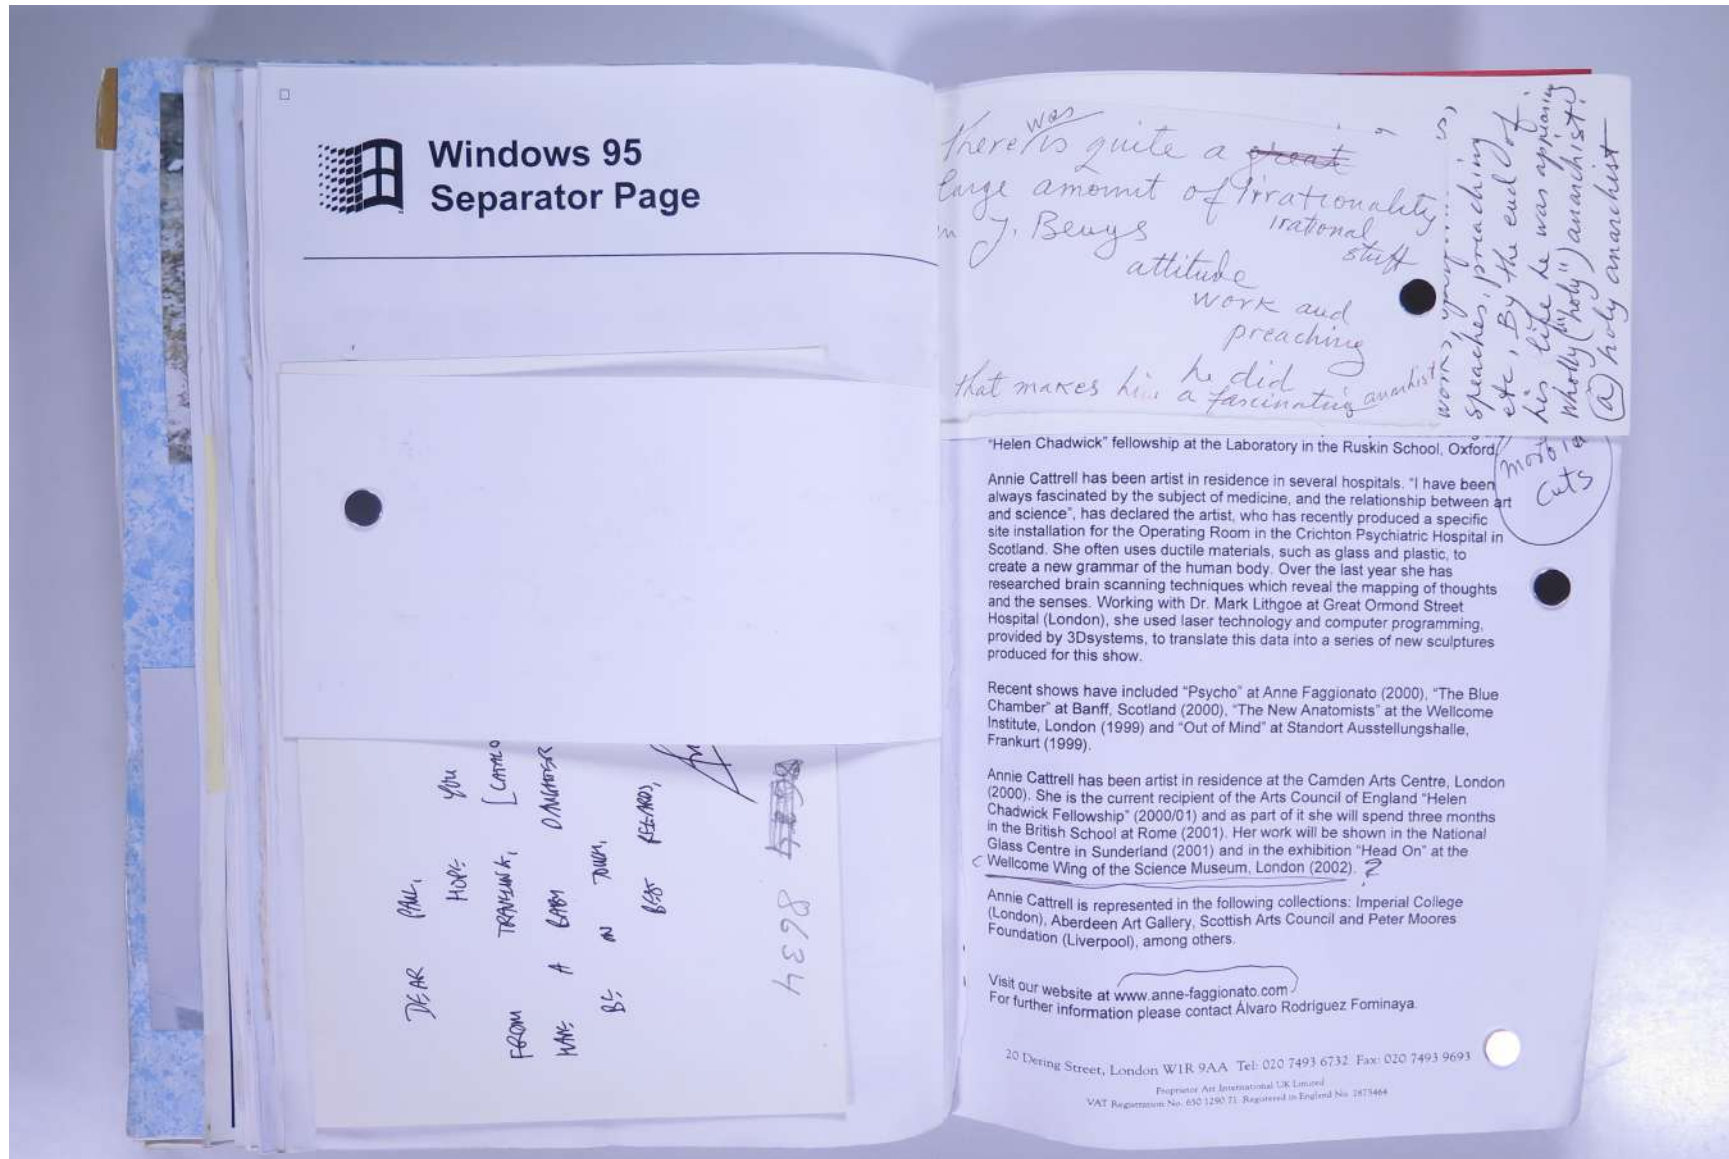 Windows 95
Separator Page
DEAR PAUL,
HOPE YOU
FROM TRAVELING, [CATALO
HAVE A BABY DAUGHTER
BE IN TOUCH,
BEST REGARDS,
48634
was
there is quite a great
large amount of irrationality
in J. Beuys irational
stuff
attitude
work and
preaching
he did
that makes him a fascinating anarchist
works,
speaches, preaching
etc, By the end of
his life he was
wholly ("holy") anarchist!
(a) holy anarchist
more
cuts
"Helen Chadwick" fellowship at the Laboratory in the Ruskin School, Oxford
Annie Cattrell has been artist in residence in several hospitals. "I have been
always fascinated by the subject of medicine, and the relationship between art
and science", has declared the artist, who has recently produced a specific
site installation for the Operating Room in the Crichton Psychiatric Hospital in
Scotland. She often uses ductile materials, such as glass and plastic, to
create a new grammar of the human body. Over the last year she has
researched brain scanning techniques which reveal the mapping of thoughts
and the senses. Working with Dr. Mark Lithgoe at Great Ormond Street
Hospital (London), she used laser technology and computer programming,
provided by 3Dsystems, to translate this data into a series of new sculptures
produced for this show.
Recent shows have included "Psycho" at Anne Faggionato (2000), "The Blue
Chamber" at Banff, Scotland (2000), "The New Anatomists" at the Wellcome
Institute, London (1999) and "Out of Mind" at Standort Ausstellungshalle,
Frankurt (1999).
Annie Cattrell has been artist in residence at the Camden Arts Centre, London
(2000). She is the current recipient of the Arts Council of England "Helen
Chadwick Fellowship" (2000/01) and as part of it she will spend three months
in the British School at Rome (2001). Her work will be shown in the National
Glass Centre in Sunderland (2001) and in the exhibition "Head On" at the
Wellcome Wing of the Science Museum, London (2002). ?
Annie Cattrell is represented in the following collections: Imperial College
(London), Aberdeen Art Gallery, Scottish Arts Council and Peter Moores
Foundation (Liverpool), among others.
Visit our website at www.anne-faggionato.com
For further information please contact Álvaro Rodríguez Fominaya.
20 Dering Street, London W1R 9AA Tel: 020 7493 6732 Fax: 020 7493 9693
Proprietor Art International UK Limited
VAT Registration No. 650 1290 71 Registered in England No. 2875464